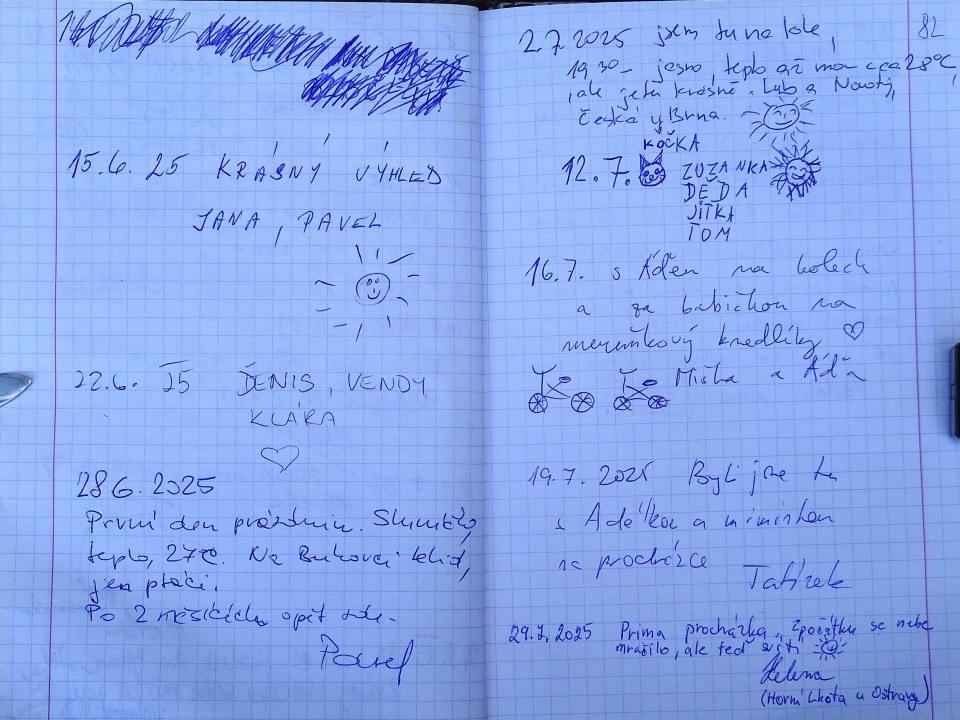 15.6. 25 KRÁSNÝ VÝHLED
JANA, PAVEL
22.6. 25 DENIS, VENDY
KLÁRA
28 6. 2025
První den prázdnin. Sluníčko,
teplo, 27°C. Na Bukovci klid,
jen ptáci.
Po 2 měsících opět zde.
Pavel
82
2.7.2025 jsem tu na kole,
19,30 - jasno, teplo až moc cca 28°C,
ale je tu krásně. Luboš Novotný,
Česká u Brna.
KOČKA
12.7. ZUZANKA
DĚDA
JITKA
TOM
16.7. s Áďou na kolech
a za babičkou na
meruňkový knedlíky
Míša a Áďa
19.7.2025 Byli jsme tu
s Adélkou a miminkem
na procházce
Tatínek
29.7.2025 Prima procházka, zpočátku se nebe
mračilo, ale teď svítí
Helena
(Horní Lhota u Ostravy)